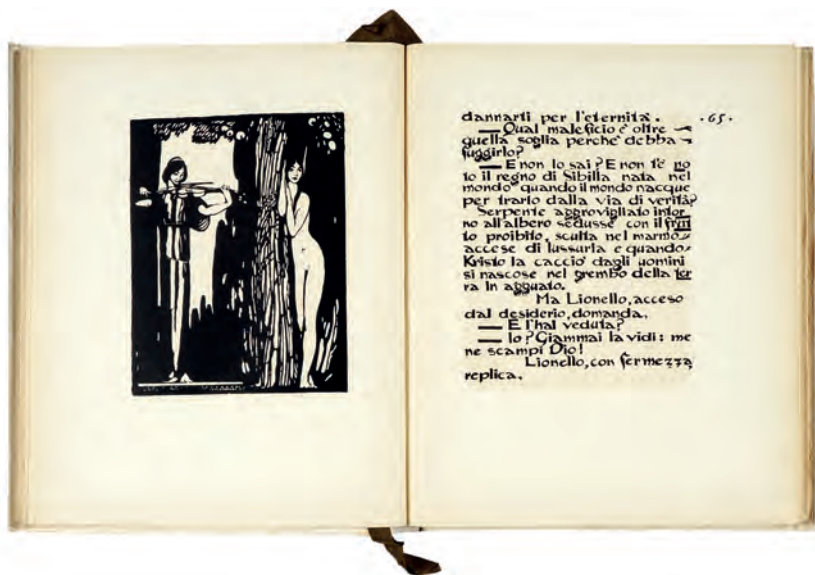 dannarti per l'eternità. ·65·
— Qual maleficio è oltre
quella soglia perchè debba
fuggirlo?
— E non lo sai? E non t'è no
to il regno di Sibilla nata nel
mondo quando il mondo nacque
per trarlo dalla via di verità?
Serpente aggrovigliato intor
no all'albero sedusse con il frut
to proibito, sculta nel marmo
accese di lussuria e quando
Kristo la cacciò dagli uomini
si nascose nel grembo della ter
ra in agguato.
Ma Lionello, acceso
dal desiderio, domanda.
— E l'hai veduta?
— Io? Giammai la vidi: me
ne scampi Dio!
Lionello, con fermezza,
replica.